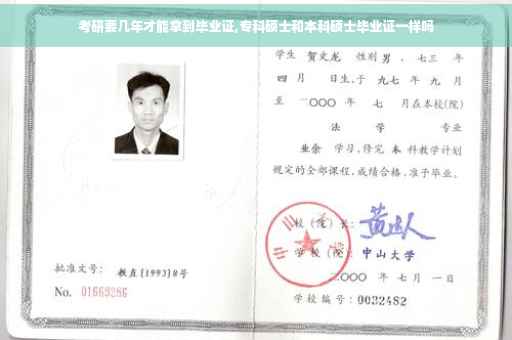 考研要几年才能拿到毕业证,专科硕士和本科硕士毕业证一样吗
学生 贺文龙 性别 男 ,七三 年
四 月 日生,于 九七 年 九 月
至 二〇〇〇 年 七 月在本校(院)
法 学 专业
业余 学习,修完 本 科教学计划
规定的全部课程,成绩合格,准予毕业。
校(院)长:
学 校(院): 中山大学
二〇〇〇 年 七 月 一 日
批准文号: 教直(1993)8号
No. 01669286
学校编号: 0032482